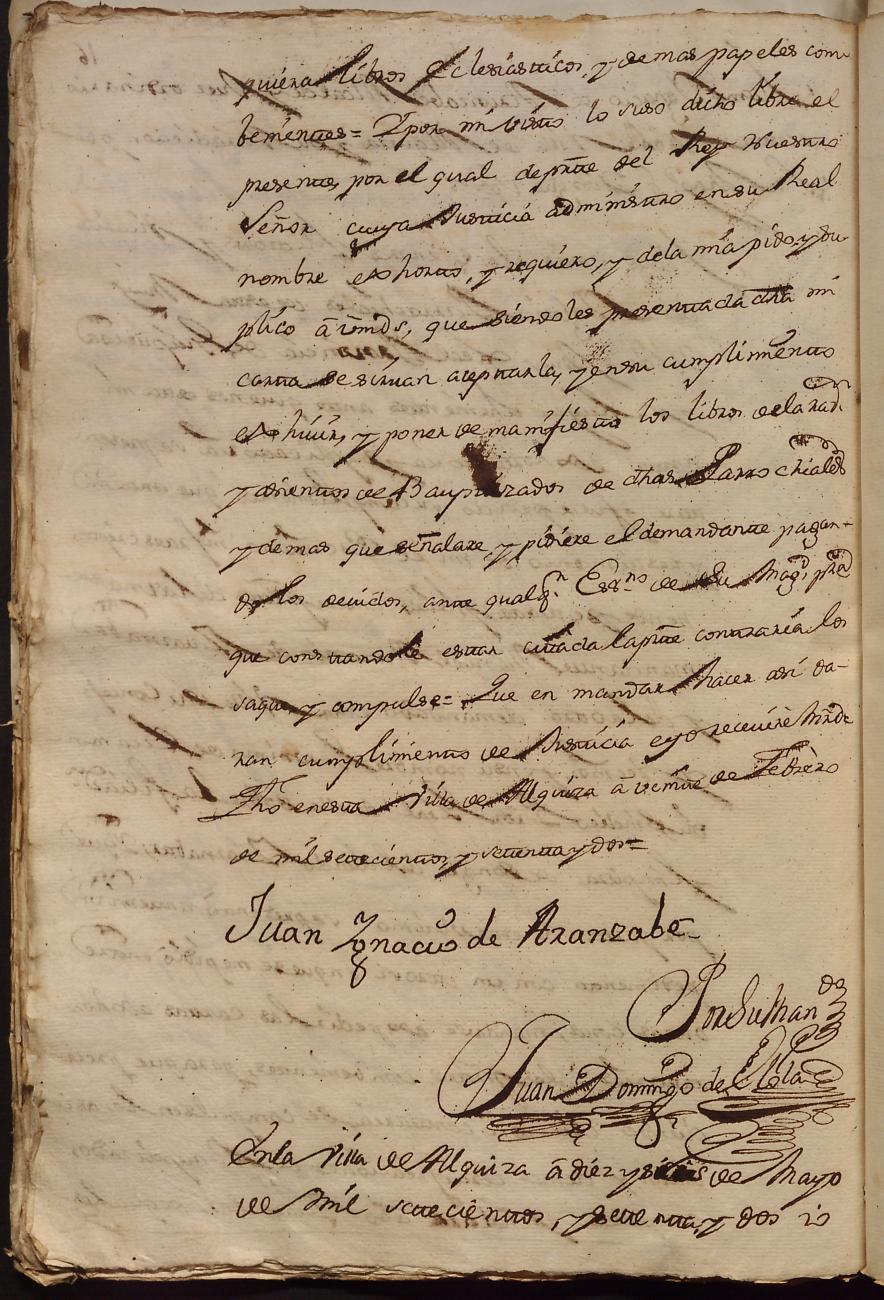 quiera libros Eclesiasticos, y demas papeles com-
benientes = Y por mi visto lo suso dicho libre el
presente, por el qual de prte del Rey Nuestro
Señor cuya Justicia administro en su Real
nombre exhorto, y requiero, y dela mia pido, y su
plico à vmds, que siendoles presentada dha mi
carta se sirvan aceptarla, y en su cumplimiento
exhivir, y poner de manifiesto los libros de
y asientos de Bauptizados de dhas Parrochiales
y demas que señalare, y pidiere el demandante pagan-
do los devidos, ante qualqr Essno de su Magd para
que constandole estar citada la pte contraria los
saque, y compulse = Que en mandar hacer asi da-
ran cumplimiento de Justicia e yo recevirè Mrd
Fho en esta Villa de Alquiza à veinte de Febrero
de mil setecientos, y setenta y dos =
Juan Ygnacio de Aranzabe
Por su Mando
Juan Domingo de Elola
En la Villa de Alquiza à diez y seis de Mayo
de Mil setecientos, y setenta, y dos io